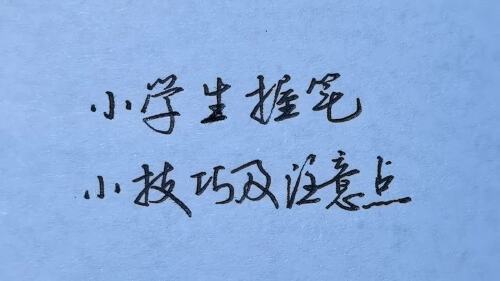 小学生握笔
小技巧及注意点